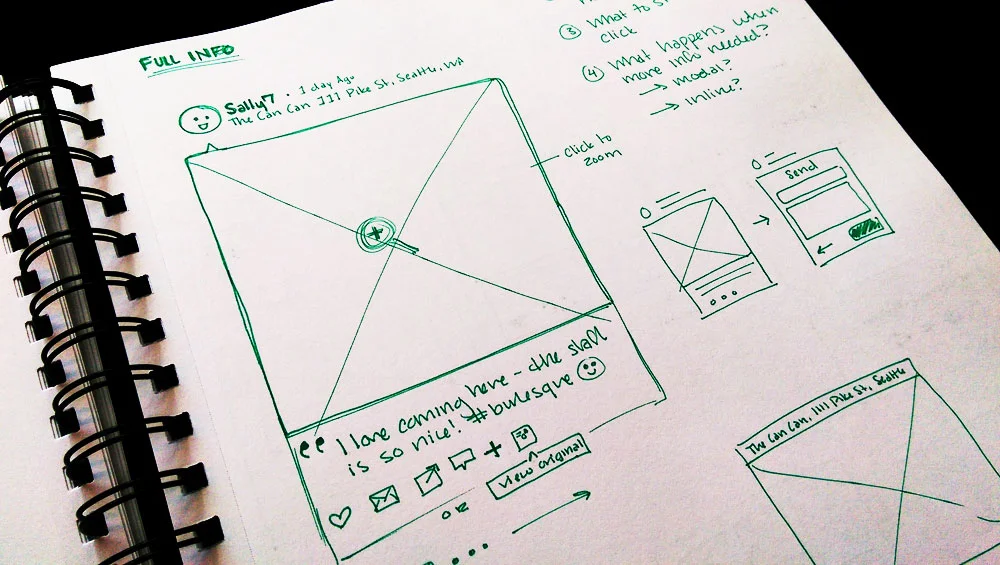 FULL INFO
Sally7 · 1 day Ago
The Can Can 1111 Pike St, Seattle, WA
click to
zoom
I love coming here - the staff
is so nice! #burlesque
view original
OR
③ What to
click
④ What happens when
more info needed?
→ modal?
→ inline?
Send
The Can Can, 1111 Pike St, Seattle